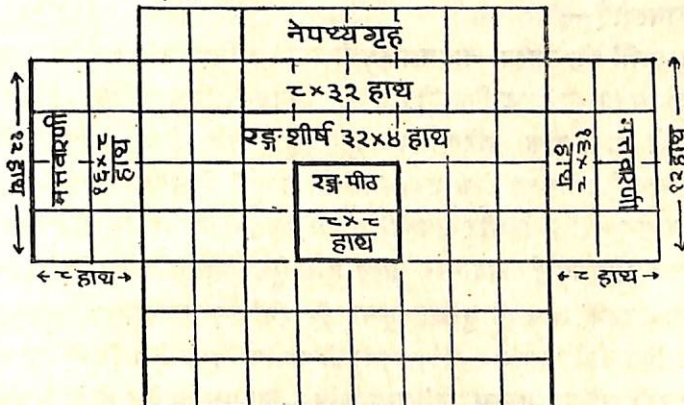 नेपथ्यगृह
८×३२ हाथ
रङ्गशीर्ष ३२×४ हाथ
रङ्ग-पीठ
८×८
हाथ
१२ हाथ
मत्तवारणी
१६×८
हाथ
८ हाथ
१६×८
हाथ
मत्तवारणी
१२ हाथ
८ हाथ